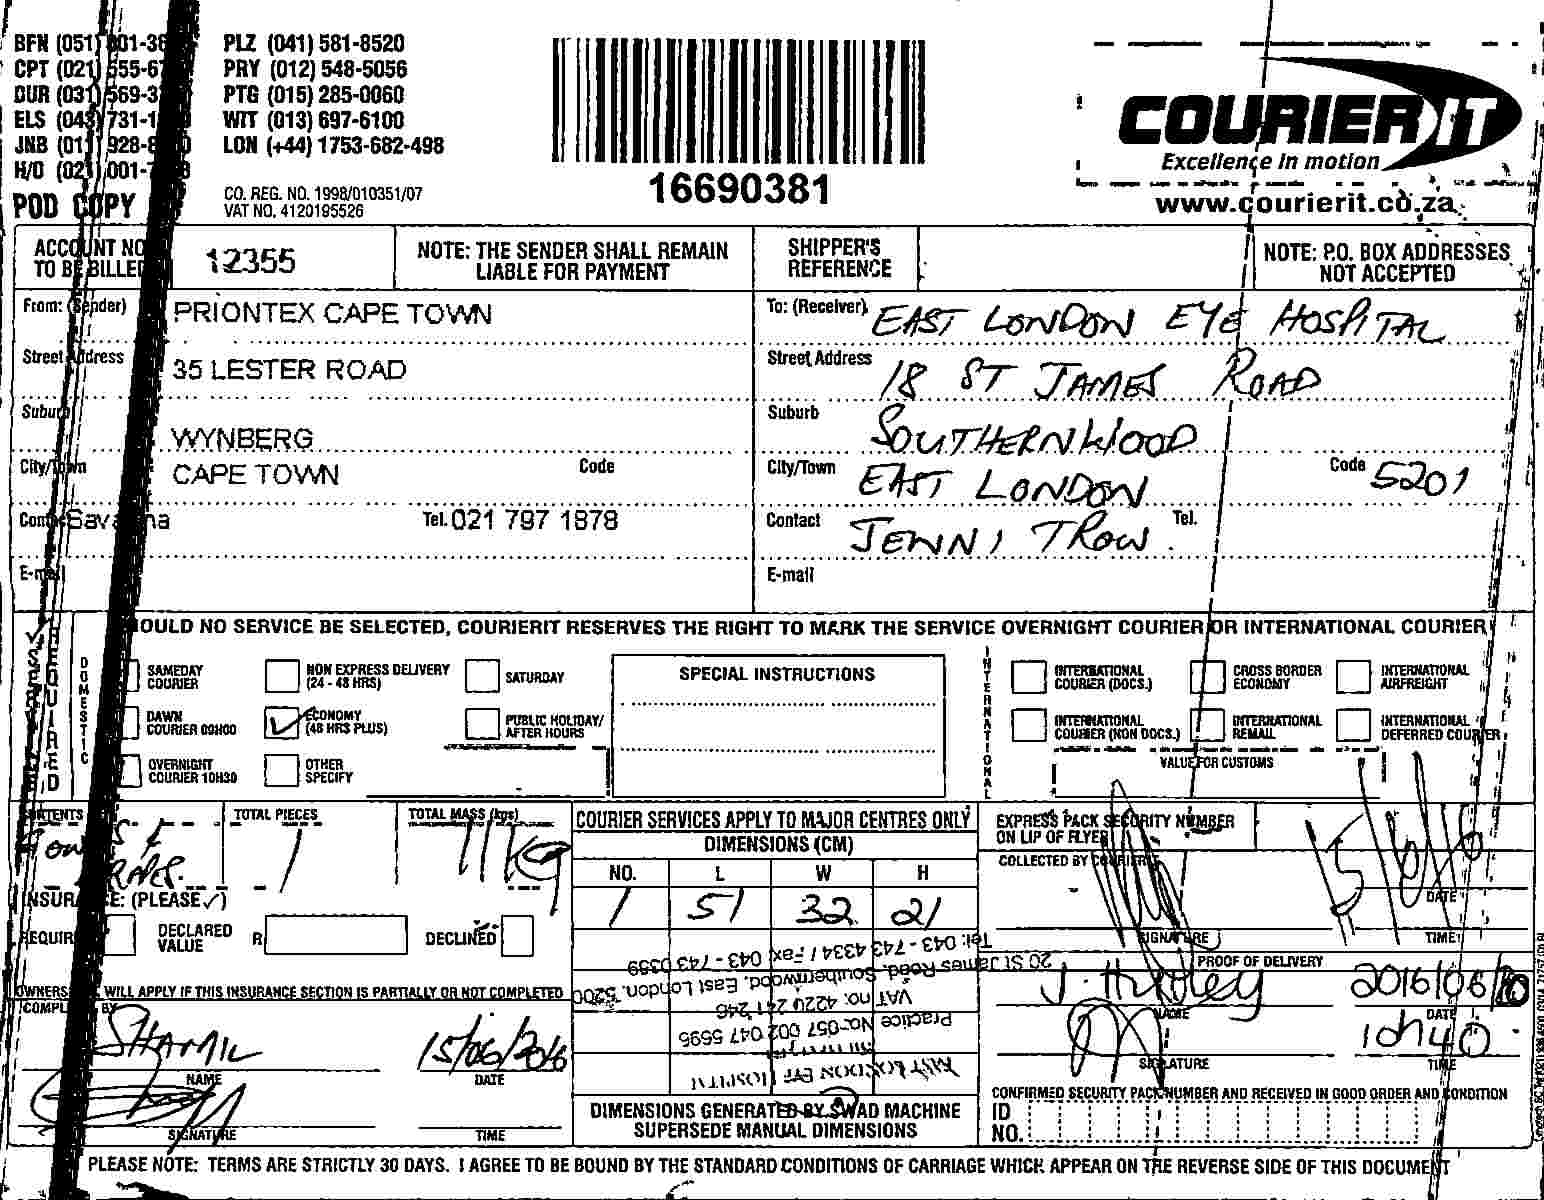 BFN (051) 001-36
PLZ (041) 581-8520
CPT (021) 555-67
PRY (012) 548-5056
DUR (031) 569-3
PTG (015) 285-0060
ELS (043) 731-1
WIT (013) 697-6100
JNB (011) 928-8
LON (+44) 1753-682-498
H/O (021) 001-7
POD COPY
CO. REG. NO. 1998/010351/07
VAT NO. 4120195526
16690381
COURIER IT
Excellence in motion
www.courierit.co.za
ACCOUNT NO TO BE BILLED
12355
NOTE: THE SENDER SHALL REMAIN LIABLE FOR PAYMENT
SHIPPER'S REFERENCE
NOTE: P.O. BOX ADDRESSES NOT ACCEPTED
From: (Sender) PRIONTEX CAPE TOWN
Street Address 35 LESTER ROAD
Suburb WYNBERG
City/Town CAPE TOWN Code
Contact Savanna Tel. 021 797 1878
E-mail
To: (Receiver) EAST LONDON EYE HOSPITAL
Street Address 18 ST JAMES ROAD
Suburb SOUTHERNWOOD
City/Town EAST LONDON Code 5201
Contact JENNI TROW. Tel.
E-mail
SHOULD NO SERVICE BE SELECTED, COURIERIT RESERVES THE RIGHT TO MARK THE SERVICE OVERNIGHT COURIER OR INTERNATIONAL COURIER
SERVICE REQUIRED
DOMESTIC
SAMEDAY COURIER
NON EXPRESS DELIVERY (24 - 48 HRS)
SATURDAY
DAWN COURIER 09H00
ECONOMY (48 HRS PLUS)
PUBLIC HOLIDAY/ AFTER HOURS
OVERNIGHT COURIER 10H30
OTHER SPECIFY
SPECIAL INSTRUCTIONS
INTERNATIONAL
INTERNATIONAL COURIER (DOCS.)
CROSS BORDER ECONOMY
INTERNATIONAL AIRFREIGHT
INTERNATIONAL COURIER (NON DOCS.)
INTERNATIONAL REMAIL
INTERNATIONAL DEFERRED COURIER
VALUE FOR CUSTOMS
CONTENTS
TOTAL PIECES 1
TOTAL MASS (kgs) 11kg
INSURANCE: (PLEASE ✓)
REQUIRED
DECLARED VALUE R
DECLINED
OWNERS WILL APPLY IF THIS INSURANCE SECTION IS PARTIALLY OR NOT COMPLETED
COMPLETED BY
SHAMIL
NAME
15/06/2016
DATE
SIGNATURE
TIME
COURIER SERVICES APPLY TO MAJOR CENTRES ONLY
DIMENSIONS (CM)
NO. L W H
1 51 32 21
EAST LONDON EYE HOSPITAL
Practice No:-057 002 047 5595
VAT no. 4220 241 246
20 St James Road, Southernwood, East London, 5200
Tel: 043 - 743 4334 / Fax: 043 - 743 0359
DIMENSIONS GENERATED BY SWAD MACHINE SUPERSEDE MANUAL DIMENSIONS
EXPRESS PACK SECURITY NUMBER ON LIP OF FLYER
COLLECTED BY COURIERIT
15/6/16
DATE
SIGNATURE
TIME
PROOF OF DELIVERY
NAME
DATE
10h40
SIGNATURE
TIME
CONFIRMED SECURITY PACK NUMBER AND RECEIVED IN GOOD ORDER AND CONDITION
ID NO.
PLEASE NOTE: TERMS ARE STRICTLY 30 DAYS. I AGREE TO BE BOUND BY THE STANDARD CONDITIONS OF CARRIAGE WHICH APPEAR ON THE REVERSE SIDE OF THIS DOCUMENT